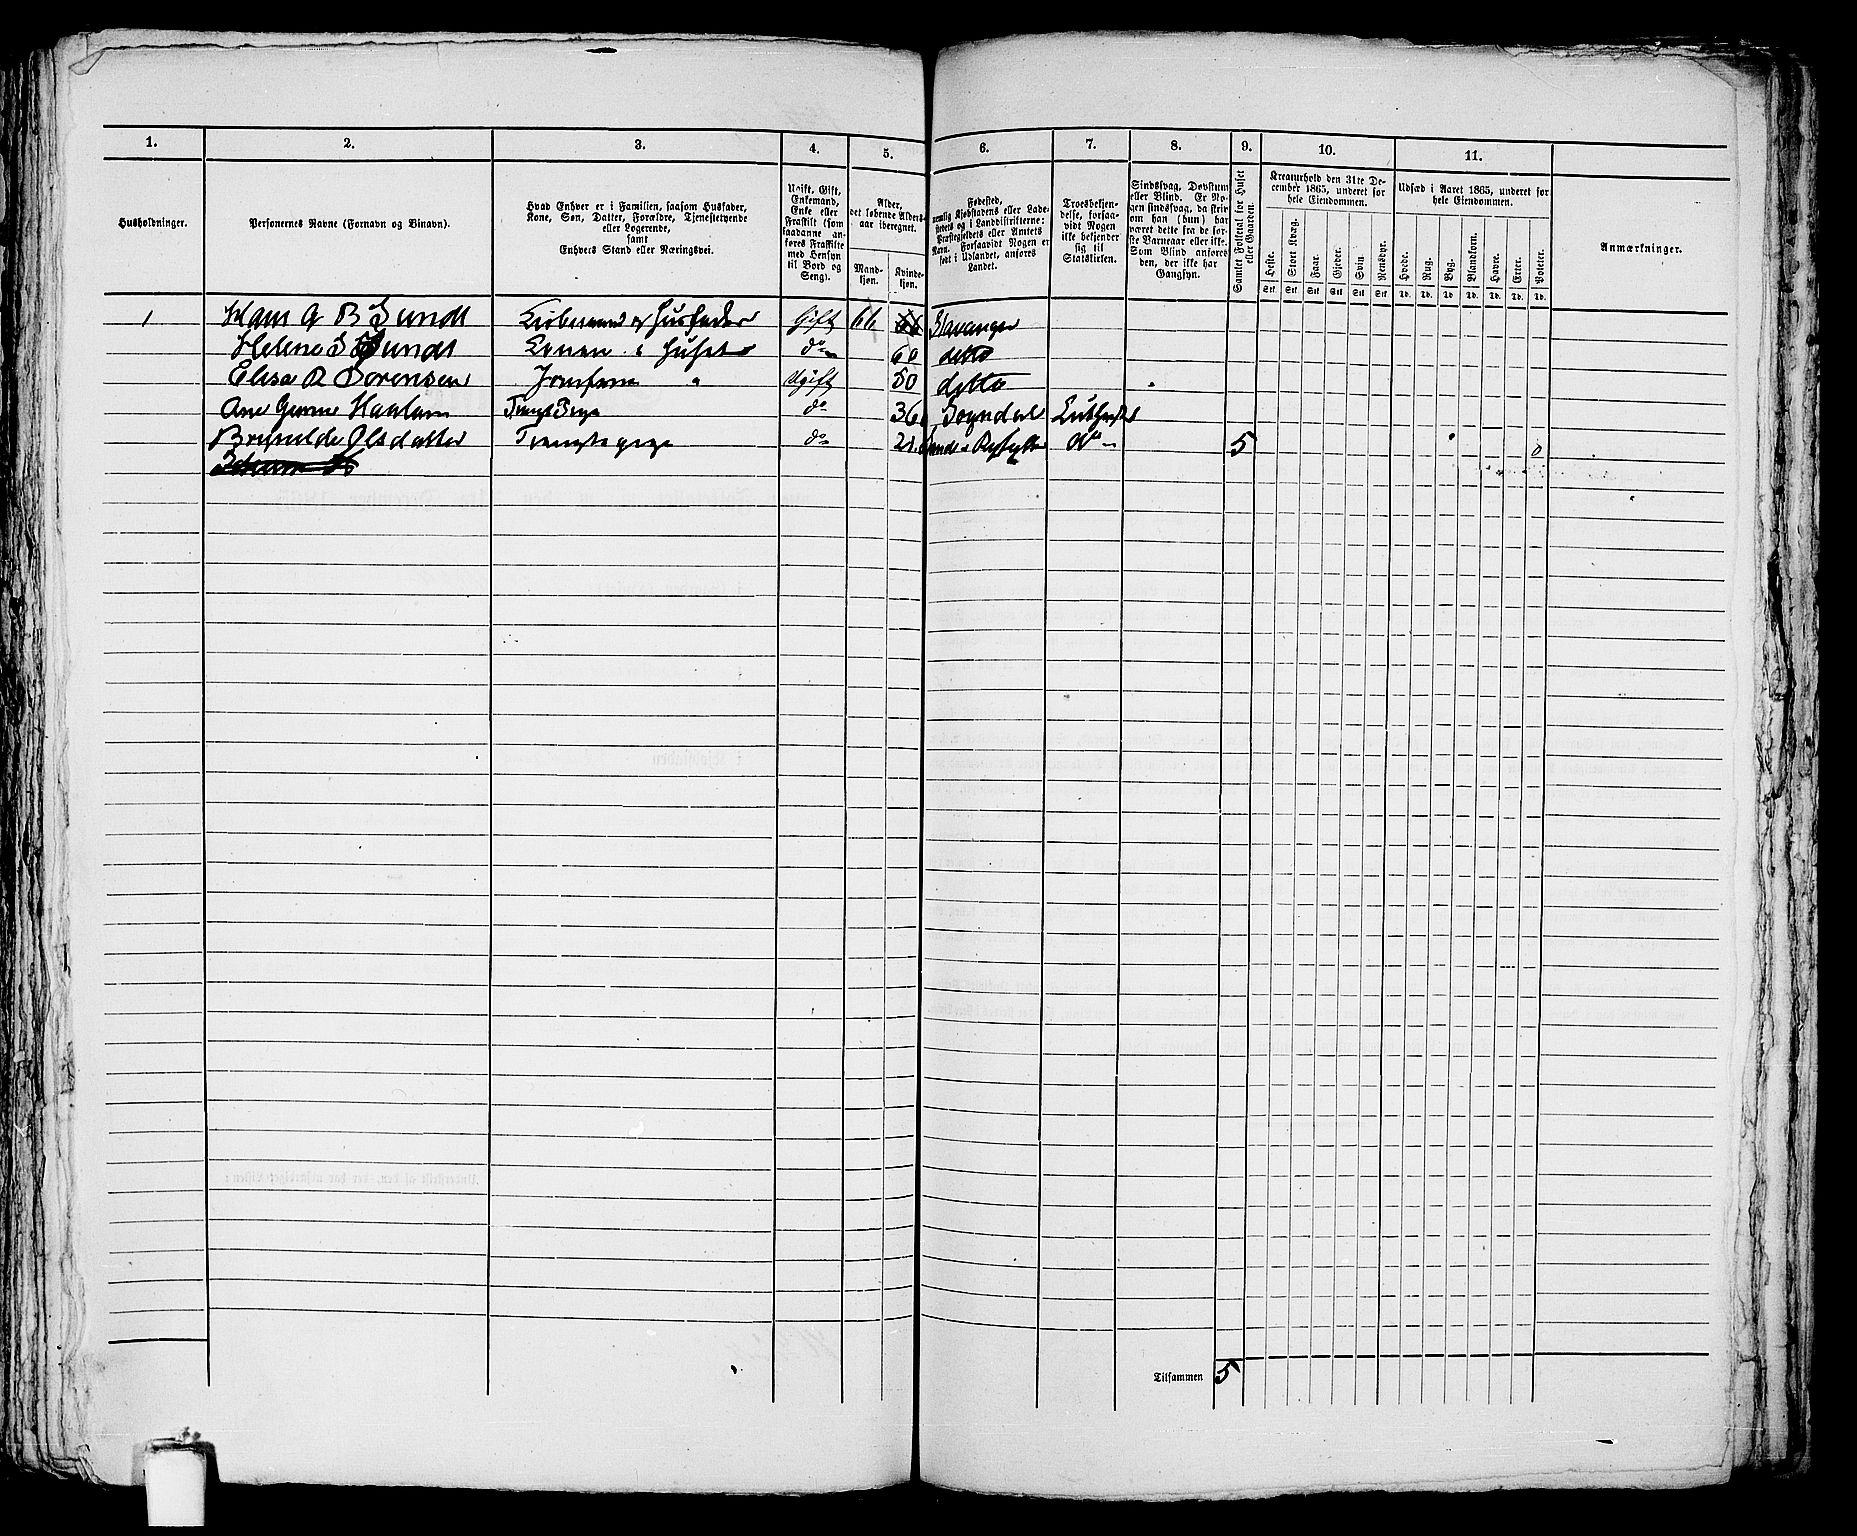 1. 2. 3. 4. 5. 6. 7. 8. 9. 10. 11.
Husholdninger.
Personernes Navne (Fornavn og Binavn).
Hvad Enhver er i Familien, saasom Husfader,
Kone, Søn, Datter, Forældre, Tjenestetyende
eller Logerende,
samt
Enhvers Stand eller Næringsvei.
Ugift, Gift,
Enkemand,
Enke eller
Fraskilt (som
saadanne an-
føres Fraskilte
med Hensyn
til Bord og
Seng).
Alder,
det løbende Alders-
aar iberegnet.
Mand-
kjøn.
Kvinde-
kjøn.
Fødested,
nemlig Kjøbstadens eller Lade-
stedets og i Landdistrikterne:
Præstegjeldets eller Amtets
Navn. Forsaavidt Nogen er
født i Udlandet, anføres
Landet.
Troesbekjen-
delse, forsaa-
vidt Nogen
ikke bekjender
sig til
Statskirken.
Sindssvag, Døvstum
eller Blind. Er No-
gen sindssvag, da skriv
om han (hun) har
været dette fra de før-
ste Barneaar eller ikke.
Som Blind anføres
den, der ikke har
Gangsyn.
Samlet Folketal for Huset
eller Gaarden.
Kreaturhold den 31te De-
cember 1865, underet for
hele Eiendommen.
Heste. Stort Kvæg. Faar. Gjeder. Svin. Rensdyr.
Stk Stk Stk Stk Stk Stk
Udsæd i Aaret 1865, underet for
hele Eiendommen.
Hvede. Rug. Byg. Blandkorn. Havre. Erter. Poteter.
Td. Td. Td. Td. Td. Td. Td.
Anmærkninger.
1 Hans G B Sundt og Husfader Gift 66 Stavanger
Helene S Sundt Konen i Huset do 60 ditto
Elisa R Sørensen Jomfru " Ugift 50 ditto
Ane Haaland do 36 Sogndal
Olsdatter do 21 do 5 0
Tilsammen 5